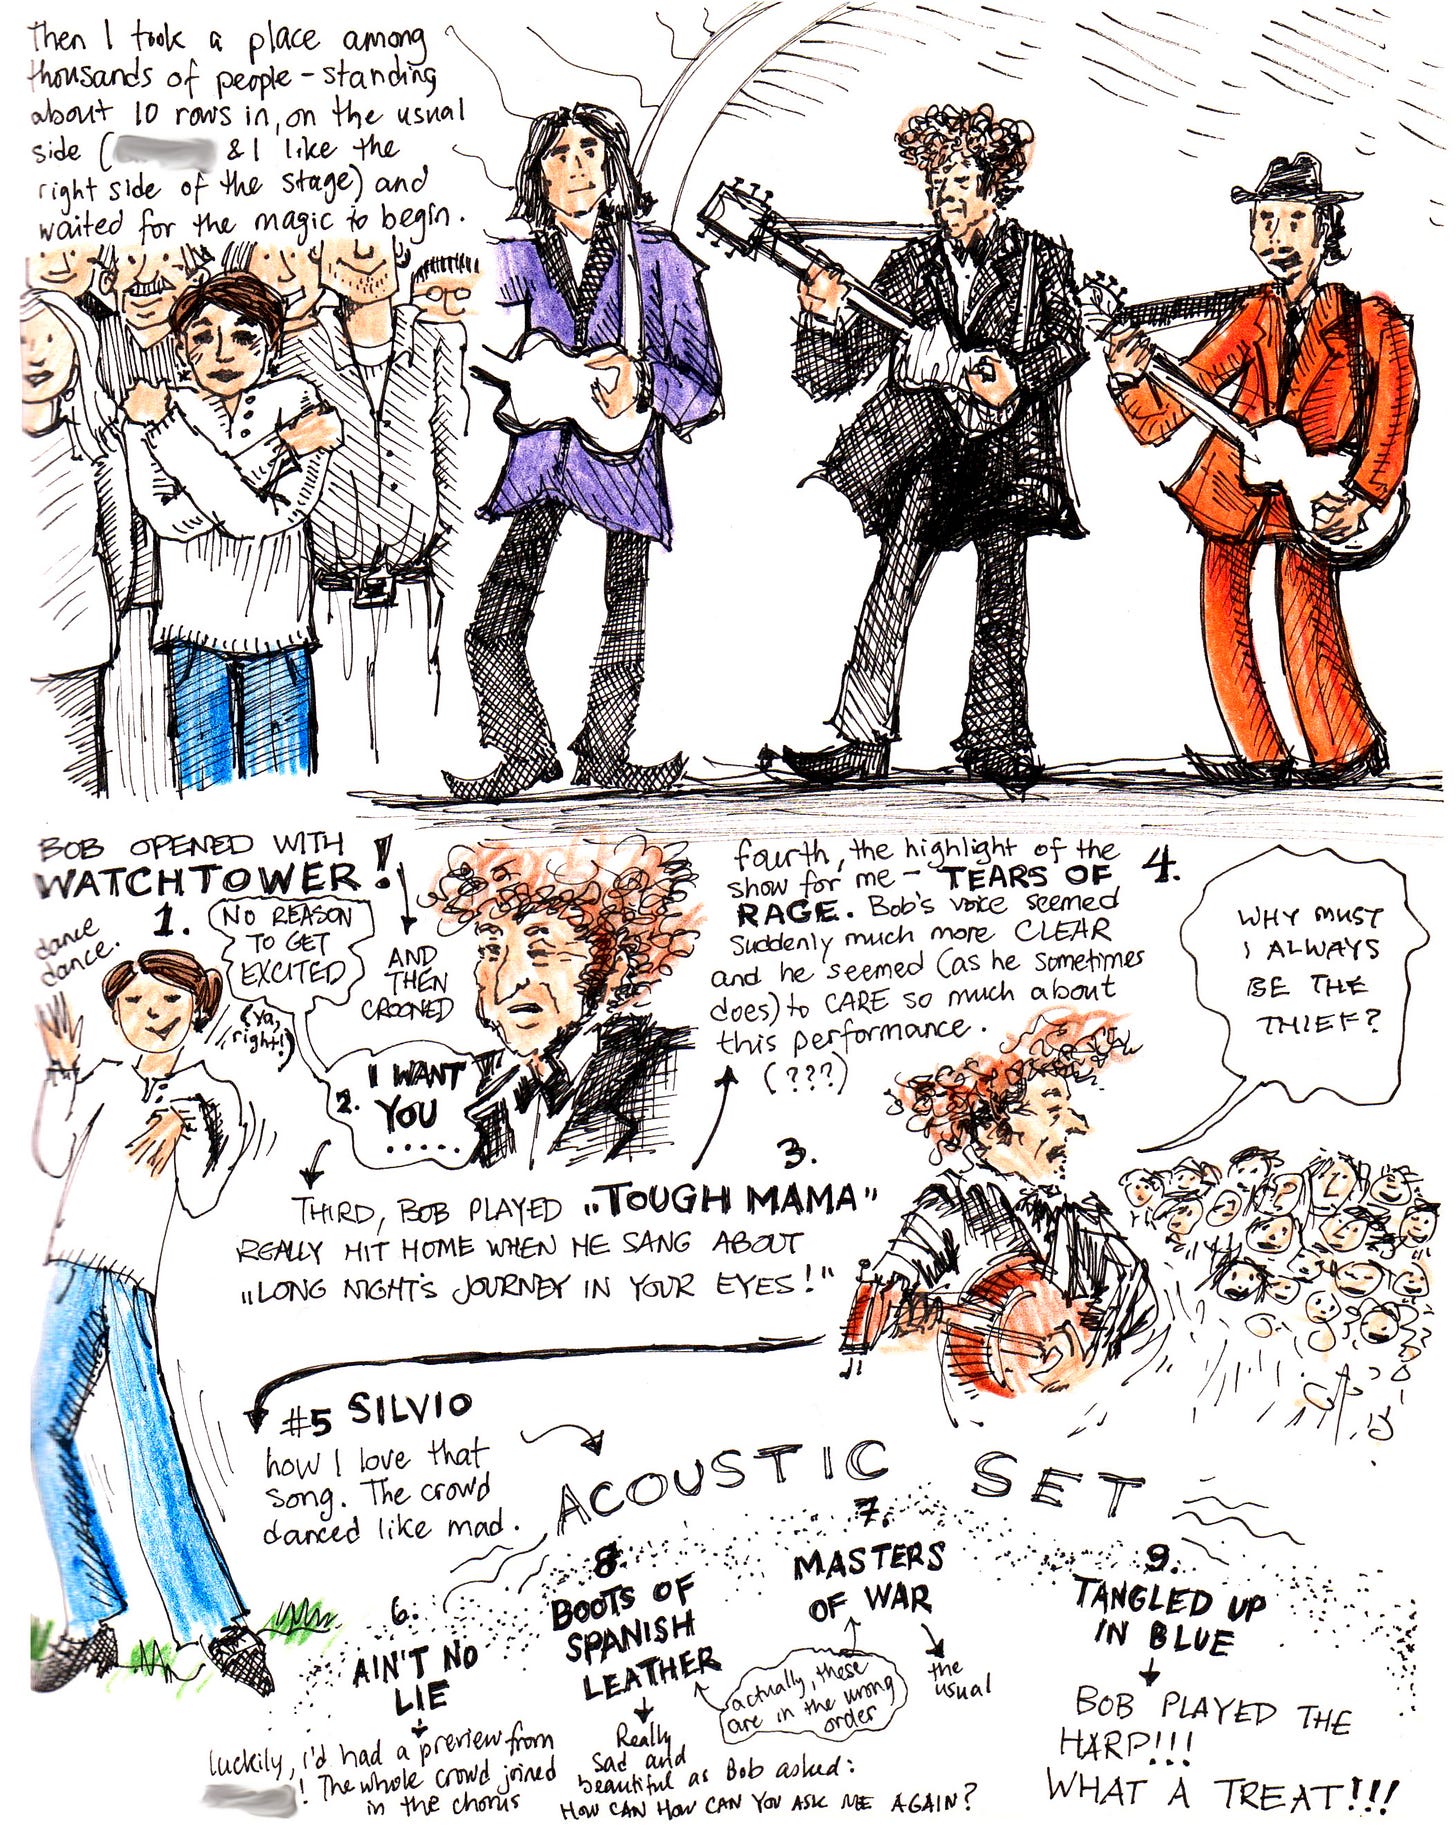 Then I took a place among
thousands of people - standing
about 10 rows in, on the usual
side ( & I like the
right side of the stage) and
waited for the magic to begin.
BOB OPENED WITH
WATCHTOWER!
1.
dance
dance.
NO REASON
TO GET
EXCITED
(ya,
right!)
AND
THEN
CROONED
2.
I WANT
YOU
.....
THIRD, BOB PLAYED „TOUGH MAMA"
3.
REALLY HIT HOME WHEN HE SANG ABOUT
„LONG NIGHT'S JOURNEY IN YOUR EYES!"
4.
fourth, the highlight of the
show for me - TEARS OF
RAGE. Bob's voice seemed
suddenly much more CLEAR
and he seemed (as he sometimes
does) to CARE so much about
this performance.
(???)
WHY MUST
I ALWAYS
BE THE
THIEF?
#5 SILVIO
how I love that
song. The crowd
danced like mad.
ACOUSTIC SET
6.
AIN'T NO
LIE
luckily, i'd had a preview from
! The whole crowd joined
in the chorus
8.
BOOTS OF
SPANISH
LEATHER
Really
sad and
beautiful as Bob asked:
HOW CAN HOW CAN YOU ASK ME AGAIN?
7.
MASTERS
OF WAR
actually, these
are in the wrong
order
the
usual
9.
TANGLED UP
IN BLUE
BOB PLAYED THE
HARP!!!
WHAT A TREAT!!!